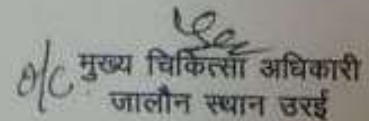 O/C मुख्य चिकित्सा अधिकारी
जालौन स्थान उरई